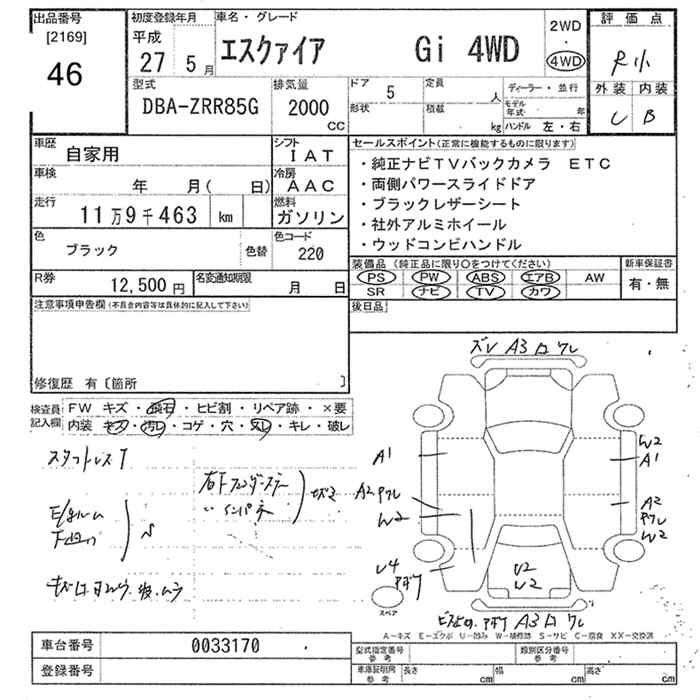 出品番号 初度登録年月 車名・グレード 評価点
[2169] 平成 2WD
46 27 5月 エスクァイア Gi 4WD ・ R小
4WD
型式 排気量 ドア 5 定員 人 ディーラー・並行 外装 内装
DBA-ZRR85G 2000 CC 形状 積載 kg モデル年式 年 C B
ハンドル 左・右
車歴 自家用 シフト IAT セールスポイント(正常に機能するものに限ります)
車検 年 月( 日) 冷房 AAC ・純正ナビTVバックカメラ ETC
・両側パワースライドドア
走行 11万9千463 km 燃料 ガソリン ・ブラックレザーシート
・社外アルミホイール
色 ブラック 色替 色コード 220 ・ウッドコンビハンドル
装備品(純正品に限り○をつけてください) 新車保証書
R券 12,500円 名変通知期限 月 日 PS PW ABS エアB AW 有・無
SR ナビ TV カワ
注意事項申告欄(不具合内容等は具体的に記入して下さい) 後日品
修復歴 有〔箇所 〕
検査員記入欄 FW キズ・飛石・ヒビ割・リペア跡・×要
内装 キズ・汚レ・コゲ・穴・スレ・キレ・破レ
スタッドレスT
下廻り S
キズ
A3 ロ ワレ
A1 W2 A1
A2 W2 A2 W2
U4 U2 W2
スペア
A3 ロ ワレ
A-キズ E-エクボ U-凹み W-補修跡 S-サビ C-腐食 XX-交換済
車台番号 0033170 型式指定番号 参考 類別区分番号 参考
登録番号 車庫証明用 参考 長さ cm 幅 cm 高さ cm